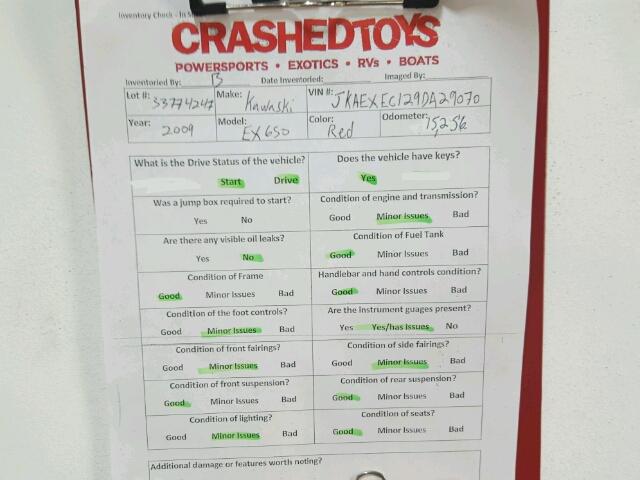 Inventory Check - In
CRASHEDTOYS
POWERSPORTS • EXOTICS • RVs • BOATS
Inventoried By: B Date Inventoried: Imaged By:
Lot #: 33774247 Make: Kawaski VIN #: JKAEXEC129DA29070
Year: 2009 Model: EX650 Color: Red Odometer: 15,256
What is the Drive Status of the vehicle? Does the vehicle have keys?
Start Drive Yes
Was a jump box required to start? Condition of engine and transmission?
Yes No Good Minor Issues Bad
Are there any visible oil leaks? Condition of Fuel Tank
Yes No Good Minor Issues Bad
Condition of Frame Handlebar and hand controls condition?
Good Minor Issues Bad Good Minor Issues Bad
Condition of the foot controls? Are the instrument guages present?
Good Minor Issues Bad Yes Yes/has Issues No
Condition of front fairings? Condition of side fairings?
Good Minor Issues Bad Good Minor Issues Bad
Condition of front suspension? Condition of rear suspension?
Good Minor Issues Bad Good Minor Issues Bad
Condition of lighting? Condition of seats?
Good Minor Issues Bad Good Minor Issues Bad
Additional damage or features worth noting?